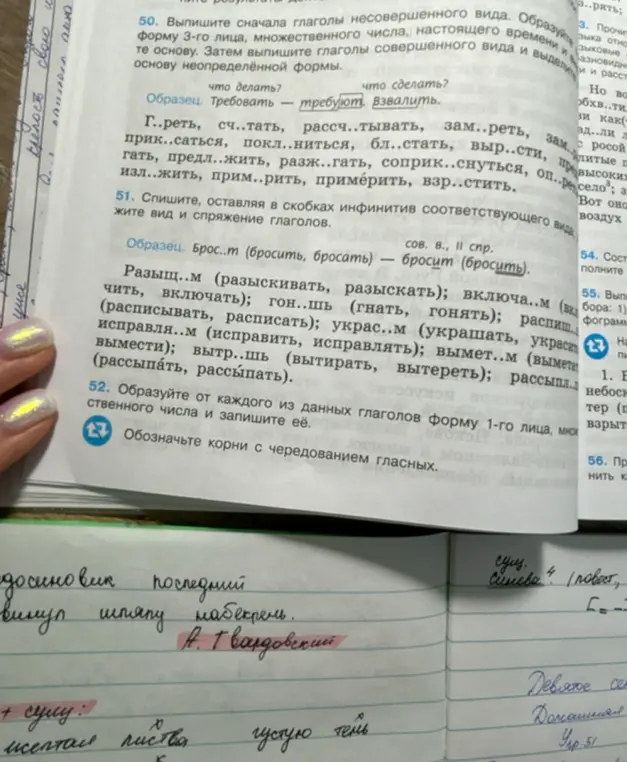 50. Выпишите сначала глаголы несовершенного вида. Образуйте
форму 3-го лица, множественного числа, настоящего времени и
те основу. Затем выпишите глаголы совершенного вида и выделите
основу неопределённой формы.
что делать? что сделать?
Образец. Требовать — требуют. Взвалить.
Г..реть, сч..тать, рассч..тывать, зам..реть, зам..
прик..саться, покл..ниться, бл..стать, выр..сти,
гать, предл..жить, разж..гать, соприк..снуться, оп..
изл..жить, прим..рить, приме́рить, взр..стить.
51. Спишите, оставляя в скобках инфинитив соответствующего вида.
жите вид и спряжение глаголов.
сов. в., II спр.
Образец. Брос..т (бросить, бросать) — бросит (бросить).
Разыщ..м (разыскивать, разыскать); включа..м (вк
чить, включать); гон..шь (гнать, гонять); распиш..
(расписывать, расписать); украс..м (украшать, украсит
исправля..м (исправить, исправлять); вымет..м (вымета
вымести); вытр..шь (вытирать, вытереть); рассыпл..
(рассыпа́ть, рассы́пать).
52. Образуйте от каждого из данных глаголов форму 1-го лица, мно
ственного числа и запишите её.
Обозначьте корни с чередованием гласных.
3. Прочи
Но во
обхв..ти
и как(
с росой
литые п
высоким
село³; а
Вот оно
воздух
54. Сост
полните
55. Вып
бора: 1)
фограмм
На
1. В
небоск
тер (п
взрыт
56. Пр
нить к
досиновик последний
винул шляпу набекрень.
А. Твардовский
+ сущ:
листва густую тень
сущ.
синева⁴. (повест,
Девятое се
Домашняя
Упр. 51